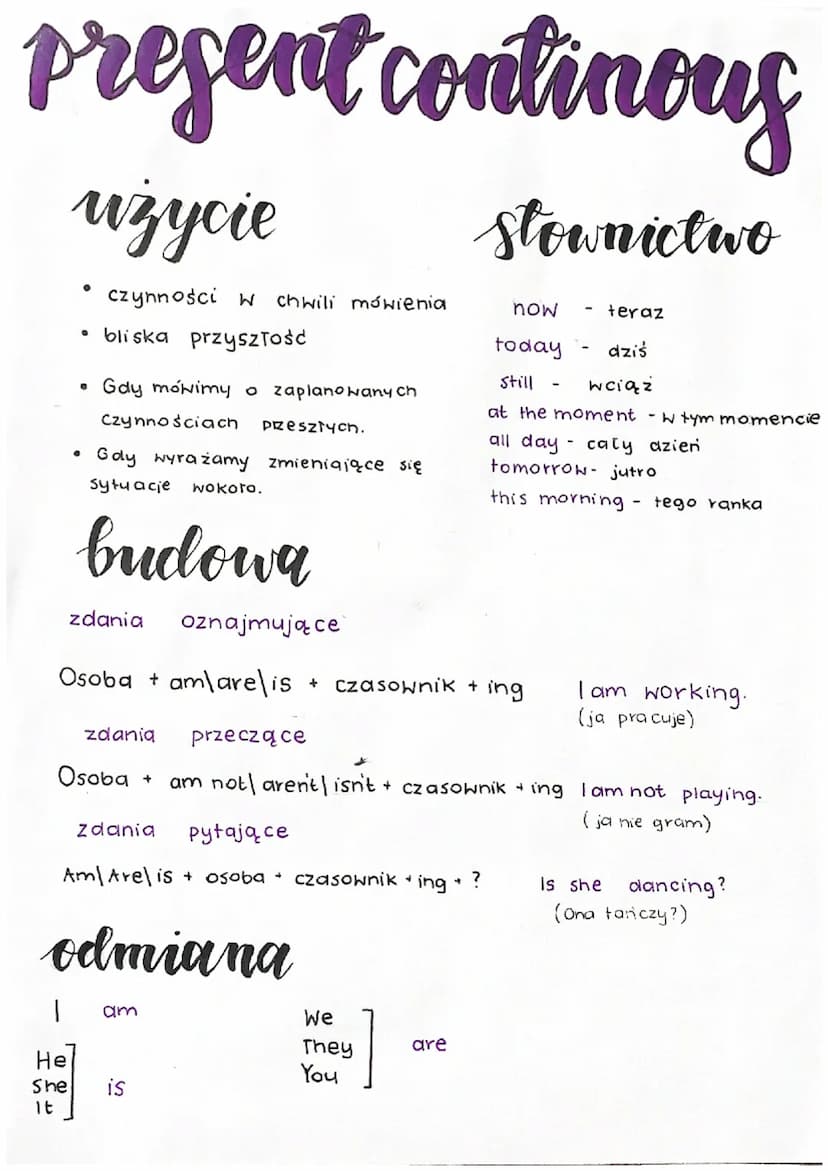 present continous
użycie
• czynności w chwili mówienia
• bliska przyszłość
• Gdy mówimy o zaplanowanych
czynnościach przeszłych.
• Gdy wyrażamy zmieniające się
sytuacje wokoło.
słownictwo
now - teraz
today - dziś
still - wciąż
at the moment - w tym momencie
all day - cały dzień
tomorrow - jutro
this morning - tego ranka
budowa
zdania oznajmujące
Osoba + am\are\is + czasownik + ing I am working.
(ja pracuje)
zdania przeczące
Osoba + am not\ aren't\ isn't + czasownik + ing I am not playing.
(ja nie gram)
zdania pytające
Am\Are\is + osoba + czasownik + ing + ? Is she dancing?
(Ona tańczy?)
odmiana
I am
He
She
It
is
We
They
You
are